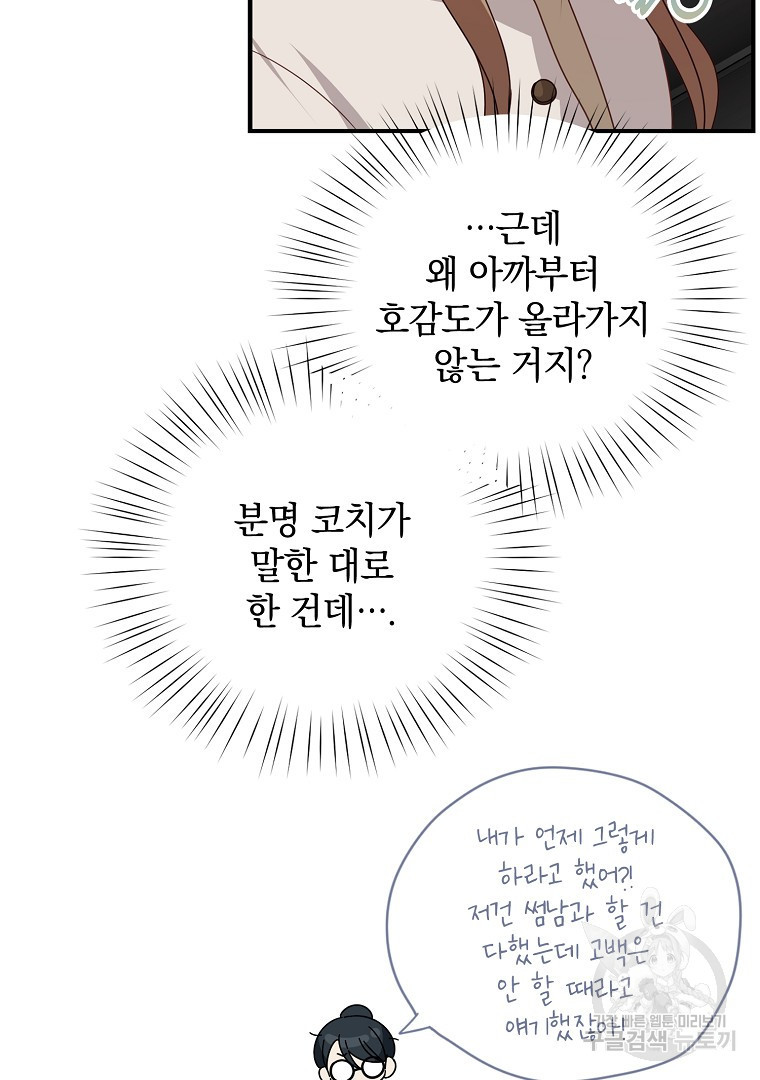 …근데
왜 아까부터
호감도가 올라가지
않는 거지?
분명 코치가
말한 대로
한 건데….
내가 언제 그렇게
하라고 했어?!
저건 썸남과 할 건
다했는데 고백은
안 할 때라고
얘기했잖아!
가장 빠른 웹툰 미리보기
구글검색 뉴토끼